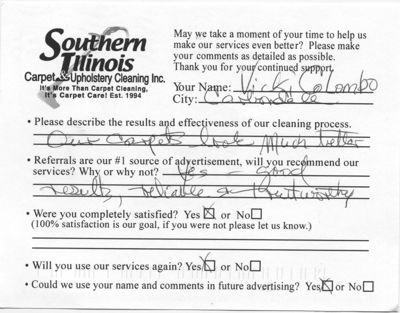 Southern
Illinois
Carpet & Upholstery Cleaning Inc.
It's More Than Carpet Cleaning,
It's Carpet Care! Est. 1994
May we take a moment of your time to help us
make our services even better? Please make
your comments as detailed as possible.
Thank you for your continued support.
Your Name: Vicki Colombo
City: Carbondale
• Please describe the results and effectiveness of our cleaning process.
Our carpets look much better
• Referrals are our #1 source of advertisement, will you recommend our
services? Why or why not? Yes - good
results, reliable & trustworthy
• Were you completely satisfied? Yes☒ or No☐
(100% satisfaction is our goal, if you were not please let us know.)
• Will you use our services again? Yes☒ or No☐
• Could we use your name and comments in future advertising? Yes☒ or No☐